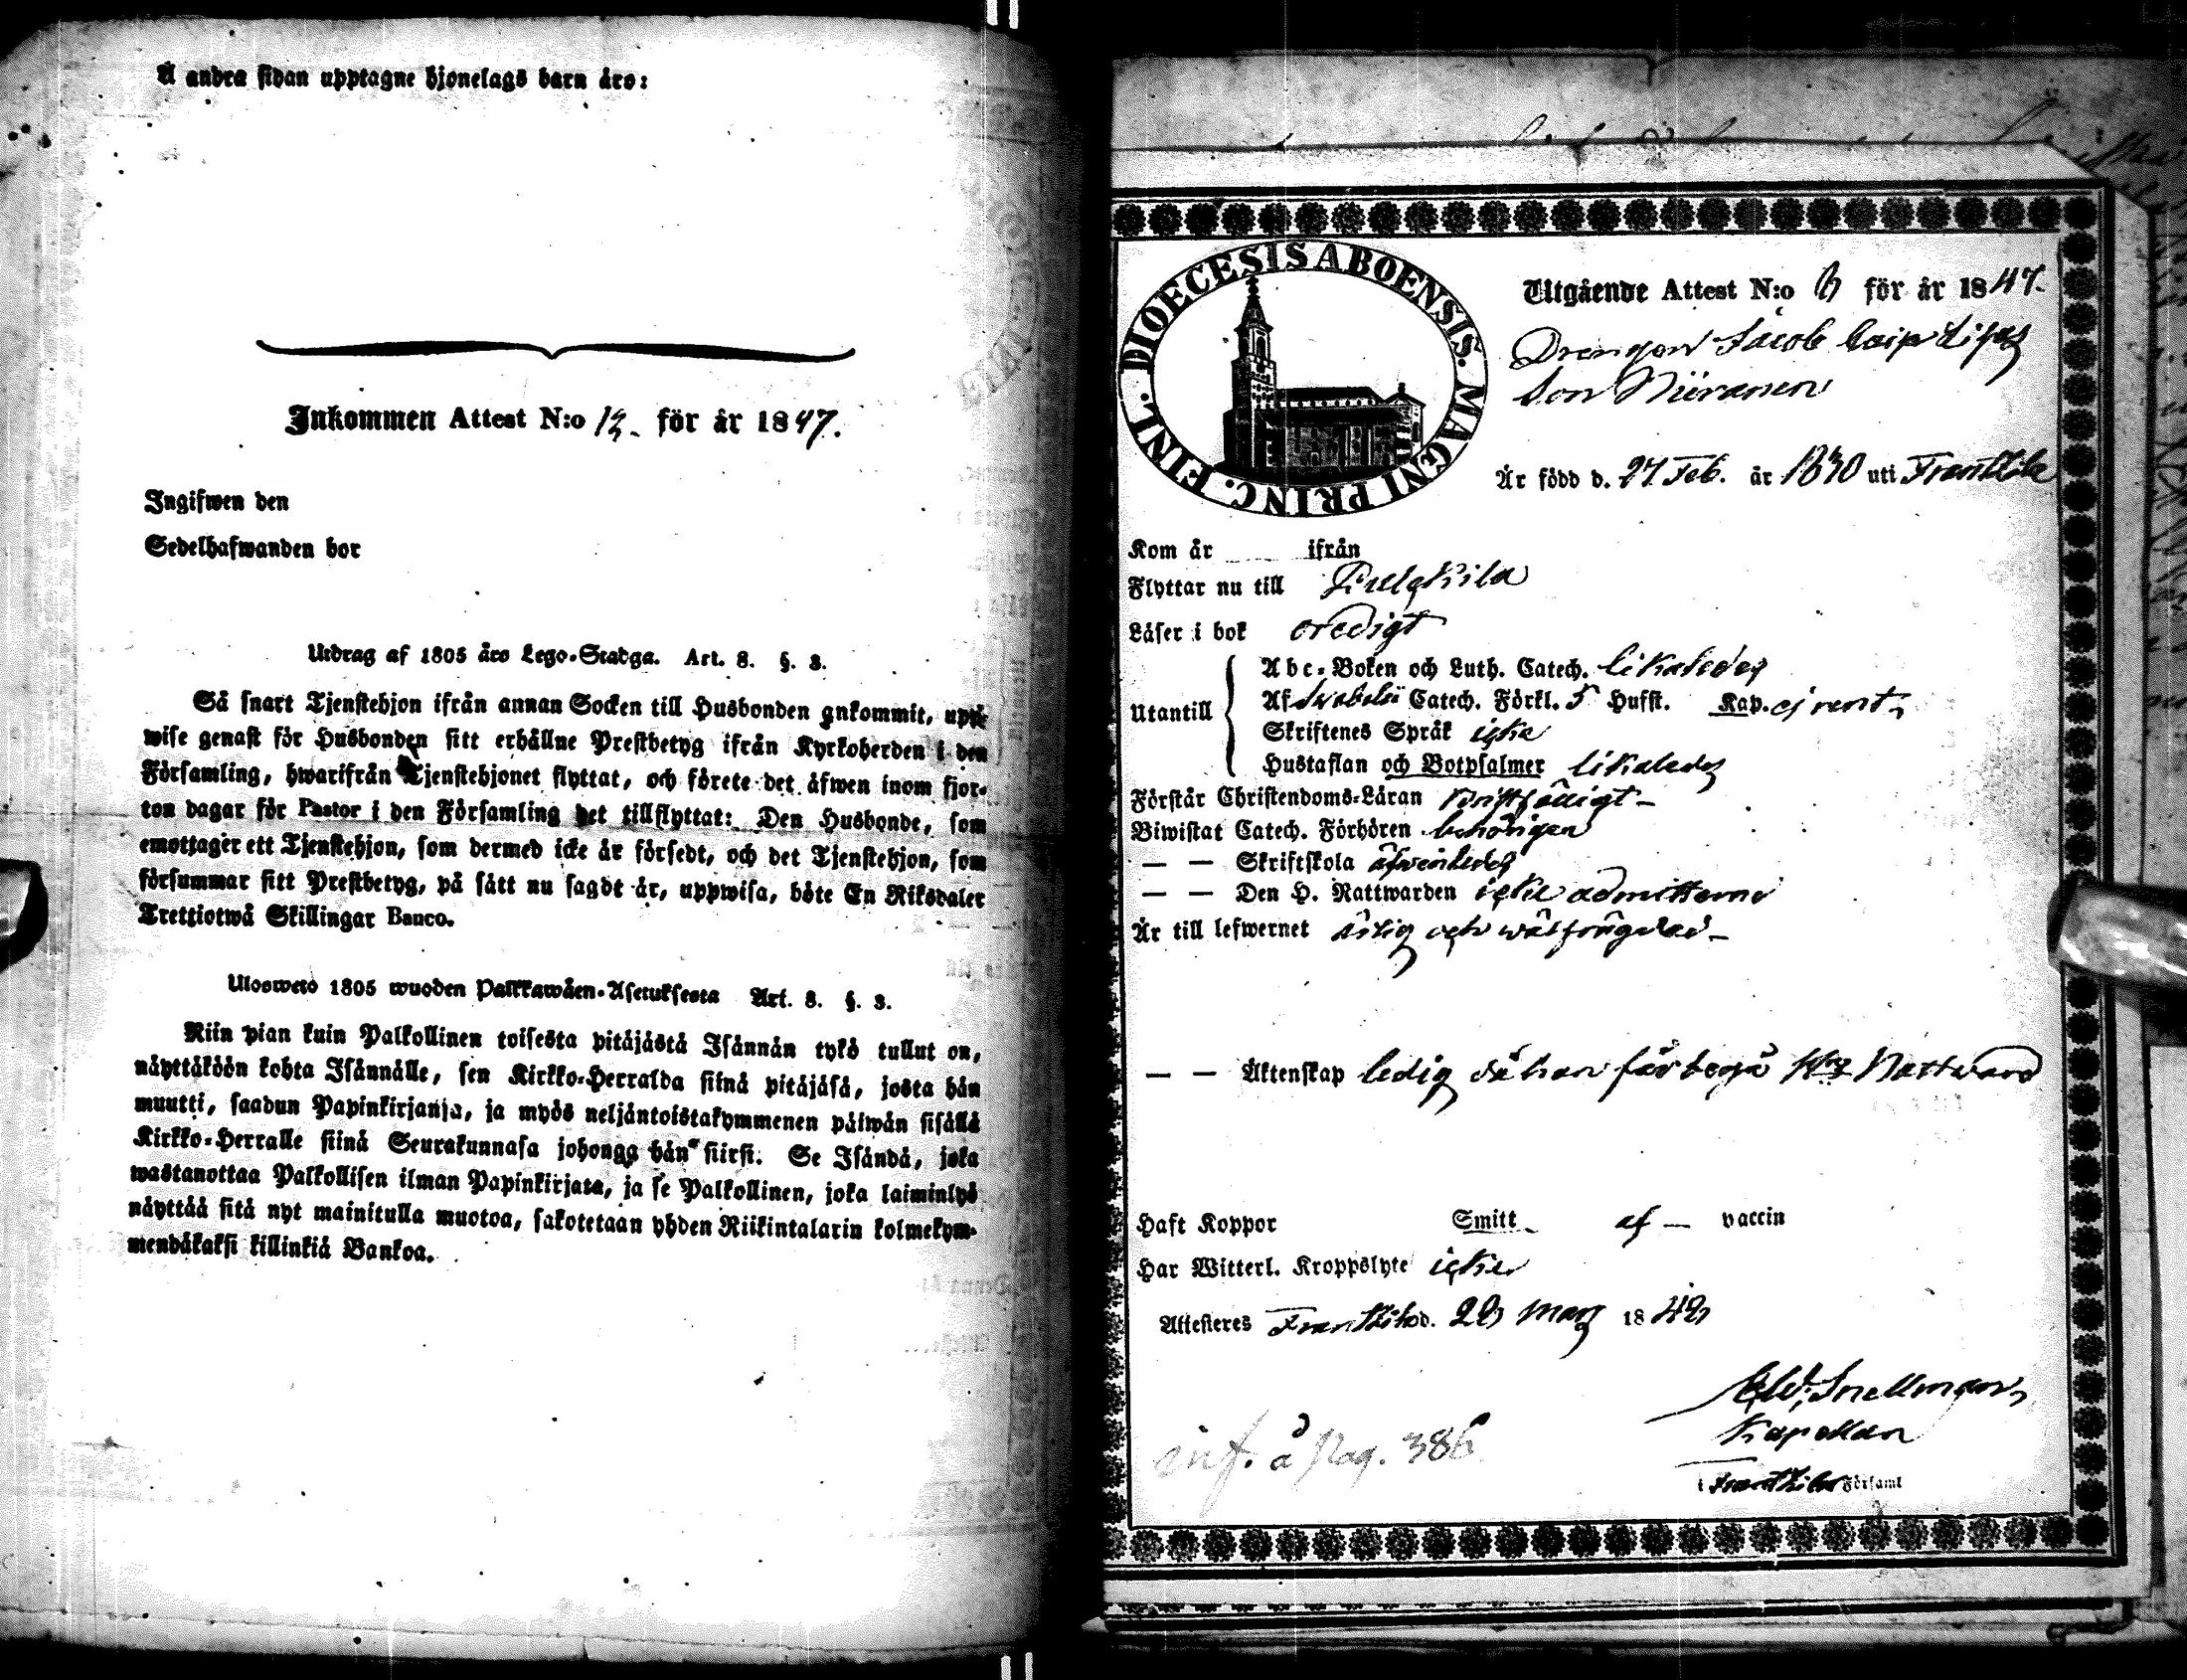 Å andra sidan upptagne hjonelags barn äro:
Inkommen Attest N:o 12. för år 1847.
Ingifwen den
Sedelhafwanden bor
Utdrag af 1805 års Lego-Stadga. Art. 8. §. 3.
Så snart Tjenstehjon ifrån annan Socken till Husbonden ankommit, upp-
wise genast för Husbonden sitt erhållne Prestbetyg ifrån Kyrkoherden i den
Församling, hwarifrån Tjenstehjonet flyttat, och förete det äfwen inom fjor-
ton dagar för Pastor i den Församling det tillflyttat: Den Husbonde, som
emottager ett Tjenstehjon, som dermed icke är försedt, och det Tjenstehjon, som
försummar sitt Prestbetyg, på sätt nu sagdt är, uppwisa, böte En Riksdaler
Trettiotwå Skillingar Banco.
Ulosweto 1805 wuoden Palkkawäen-Asetuksesta Art. 8. §. 3.
Niin pian kuin Palkollinen toisesta pitäjästä Isännän tykö tullut on,
näyttäköön kohta Isännälle, sen Kirkko-Herralda siinä pitäjäsä, josta hän
muutti, saadun Papinkirjanja, ja myös neljäntoistakymmenen päiwän sisällä
Kirkko-Herralle siinä Seurakunnasa johonga hän siirsi. Se Isändä, joka
wastanottaa Palkollisen ilman Papinkirjata, ja se Palkollinen, joka laiminlyö
näyttää sitä nyt mainitulla muotoa, sakotetaan yhden Riikintalarin kolmekym-
mendäkaksi killinkiä Bankoa.
DIOECESIS ABOENSIS. MAGNI PRINC. FINL.
Utgående Attest N:o för år 1847.
Drengen Jacob
Son Niiranen
Är född d. 27 Feb. år 1830 uti Frantzila
Kom år ifrån
Flyttar nu till Pulkkila
Läser i bok oredigt
Utantill
Abc-Boken och Luth. Catech. likaledes
Af Swebelii Catech. Förkl. 5 Hufst. Kap. ej rent
Skriftenes Språk icke
Hustaflan och Botpsalmer likaledes
Förstår Christendoms-Läran bristfälligt
Biwistat Catech. Förhören behörigen
— — Skriftskola äfwenledes
— — Den H. Nattwarden icke admitterad
Är till lefwernet ärlig och wälfrägdad
— — Äktenskap ledig då han får begå Hrs Nattward
Haft Koppor Smitt af — vaccin
Har Witterl. Kroppslyte icke
Attesteres Frantzila d. Mars 18
Snellman
Kapellan
i Frantzila Församl
inf. å Pag. 386